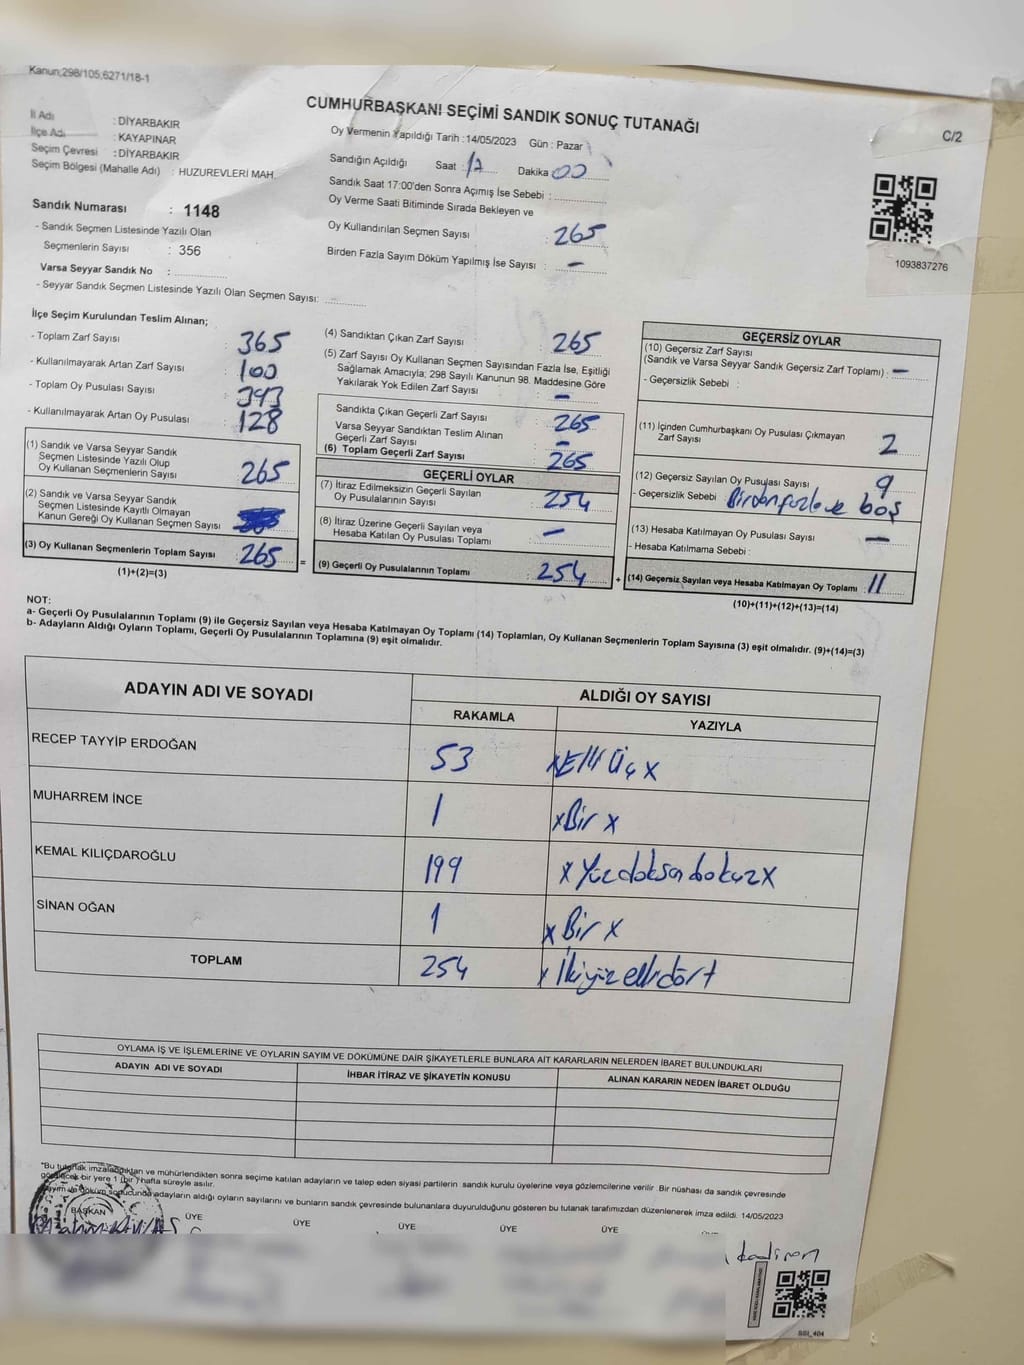 Kanun;298/105;6271/18-1
CUMHURBAŞKANI SEÇİMİ SANDIK SONUÇ TUTANAĞI
C/2
İl Adı : DİYARBAKIR
İlçe Adı : KAYAPINAR
Seçim Çevresi : DİYARBAKIR
Seçim Bölgesi (Mahalle Adı) : HUZUREVLERİ MAH.
Oy Vermenin Yapıldığı Tarih : 14/05/2023 Gün : Pazar
Sandığın Açıldığı Saat : 17 Dakika 00
Sandık Saat 17:00'den Sonra Açımış İse Sebebi :
Oy Verme Saati Bitiminde Sırada Bekleyen ve
Oy Kullandırılan Seçmen Sayısı : 265
Birden Fazla Sayım Döküm Yapılmış İse Sayısı : –
1093837276
Sandık Numarası : 1148
- Sandık Seçmen Listesinde Yazılı Olan
Seçmenlerin Sayısı : 356
Varsa Seyyar Sandık No :
- Seyyar Sandık Seçmen Listesinde Yazılı Olan Seçmen Sayısı:
İlçe Seçim Kurulundan Teslim Alınan;
- Toplam Zarf Sayısı : 365
- Kullanılmayarak Artan Zarf Sayısı : 100
- Toplam Oy Pusulası Sayısı : 393
- Kullanılmayarak Artan Oy Pusulası : 128
(1) Sandık ve Varsa Seyyar Sandık
Seçmen Listesinde Yazılı Olup
Oy Kullanan Seçmenlerin Sayısı : 265
(2) Sandık ve Varsa Seyyar Sandık
Seçmen Listesinde Kayıtlı Olmayan
Kanun Gereği Oy Kullanan Seçmen Sayısı :
(3) Oy Kullanan Seçmenlerin Toplam Sayısı : 265
(1)+(2)=(3)
(4) Sandıktan Çıkan Zarf Sayısı : 265
(5) Zarf Sayısı Oy Kullanan Seçmen Sayısından Fazla İse, Eşitliği
Sağlamak Amacıyla; 298 Sayılı Kanunun 98. Maddesine Göre
Yakılarak Yok Edilen Zarf Sayısı : –
Sandıkta Çıkan Geçerli Zarf Sayısı : 265
Varsa Seyyar Sandıktan Teslim Alınan
Geçerli Zarf Sayısı : –
(6) Toplam Geçerli Zarf Sayısı : 265
GEÇERLİ OYLAR
(7) İtiraz Edilmeksizin Geçerli Sayılan
Oy Pusulalarının Sayısı : 254
(8) İtiraz Üzerine Geçerli Sayılan veya
Hesaba Katılan Oy Pusulası Toplamı : –
(9) Geçerli Oy Pusulalarının Toplamı : 254
GEÇERSİZ OYLAR
(10) Geçersiz Zarf Sayısı
(Sandık ve Varsa Seyyar Sandık Geçersiz Zarf Toplamı) : –
- Geçersizlik Sebebi :
(11) İçinden Cumhurbaşkanı Oy Pusulası Çıkmayan
Zarf Sayısı 2
(12) Geçersiz Sayılan Oy Pusulası Sayısı : 9
- Geçersizlik Sebebi : Birden fazla ve boş
(13) Hesaba Katılmayan Oy Pusulası Sayısı : –
- Hesaba Katılmama Sebebi :
(14) Geçersiz Sayılan veya Hesaba Katılmayan Oy Toplamı : 11
(10)+(11)+(12)+(13)=(14)
NOT:
a- Geçerli Oy Pusulalarının Toplamı (9) ile Geçersiz Sayılan veya Hesaba Katılmayan Oy Toplamı (14) Toplamları, Oy Kullanan Seçmenlerin Toplam Sayısına (3) eşit olmalıdır. (9)+(14)=(3)
b- Adayların Aldığı Oyların Toplamı, Geçerli Oy Pusulalarının Toplamına (9) eşit olmalıdır.
ADAYIN ADI VE SOYADI ALDIĞI OY SAYISI
RAKAMLA YAZIYLA
RECEP TAYYİP ERDOĞAN 53 x Elli Üç x
MUHARREM İNCE 1 x Bir x
KEMAL KILIÇDAROĞLU 199 x Yüzdoksandokuz x
SİNAN OĞAN 1 x Bir x
TOPLAM 254 x İkiyüz ellidört
OYLAMA İŞ VE İŞLEMLERİNE VE OYLARIN SAYIM VE DÖKÜMÜNE DAİR ŞİKAYETLERLE BUNLARA AİT KARARLARIN NELERDEN İBARET BULUNDUKLARI
ADAYIN ADI VE SOYADI İHBAR İTİRAZ VE ŞİKAYETİN KONUSU ALINAN KARARIN NEDEN İBARET OLDUĞU
*Bu tutanak imzalandıktan ve mühürlendikten sonra seçime katılan adayların ve talep eden siyasi partilerin sandık kurulu üyelerine veya gözlemcilerine verilir. Bir nüshası da sandık çevresinde
görülecek bir yere 1 (bir) hafta süreyle asılır.
Sayım ve döküm sonucunda adayların aldığı oyların sayılarını ve bunların sandık çevresinde bulunanlara duyurulduğunu gösteren bu tutanak tarafımızdan düzenlenerek imza edildi. 14/05/2023
BAŞKAN ÜYE ÜYE ÜYE ÜYE ÜYE
SSI_404